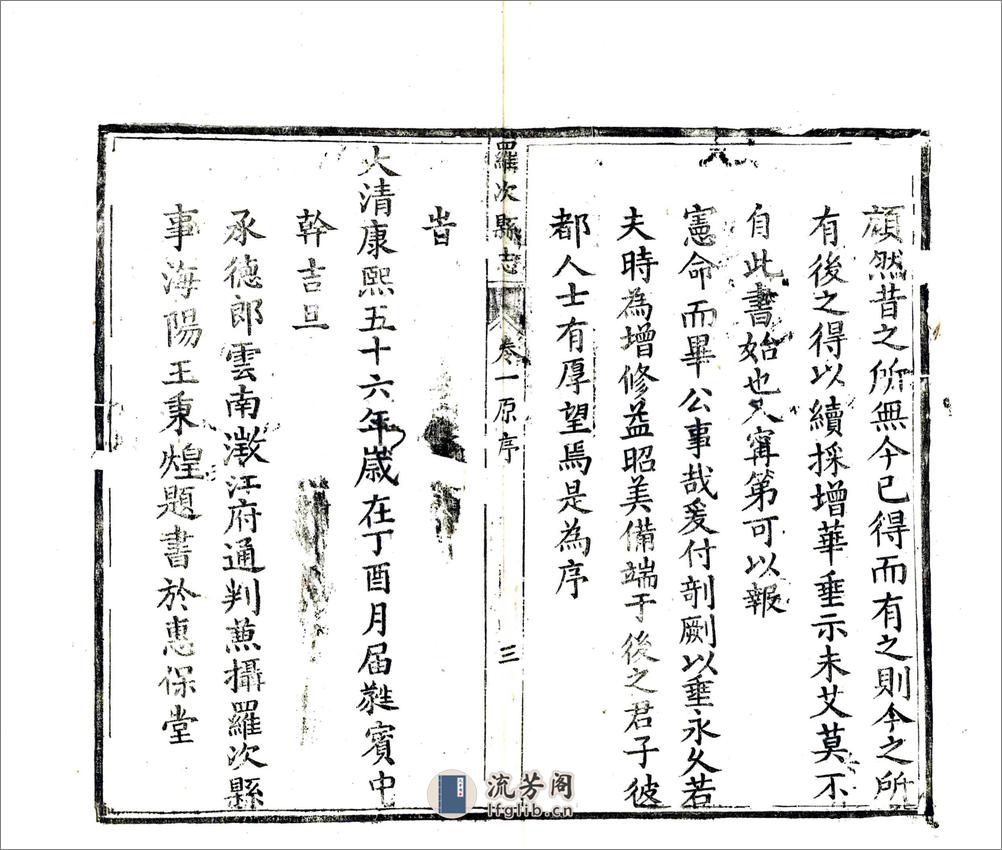 頏然昔之所無今已得而有之則今之所
有後之得以續採增華垂示未艾莫不
自此書始也又寧第可以報
憲命而畢公事哉爰付剞劂以垂永久若
夫時為增修益昭美備端于後之君子彼
都人士有厚望焉是為序
羅次縣志
卷一原序
三
旹
大清康熙五十六年歲在丁酉月届蕤賓中
幹吉旦
承德郎雲南澂江府通判兼攝羅次縣
事海陽王秉煌題書於惠保堂
流芳阁
lfglib.cn